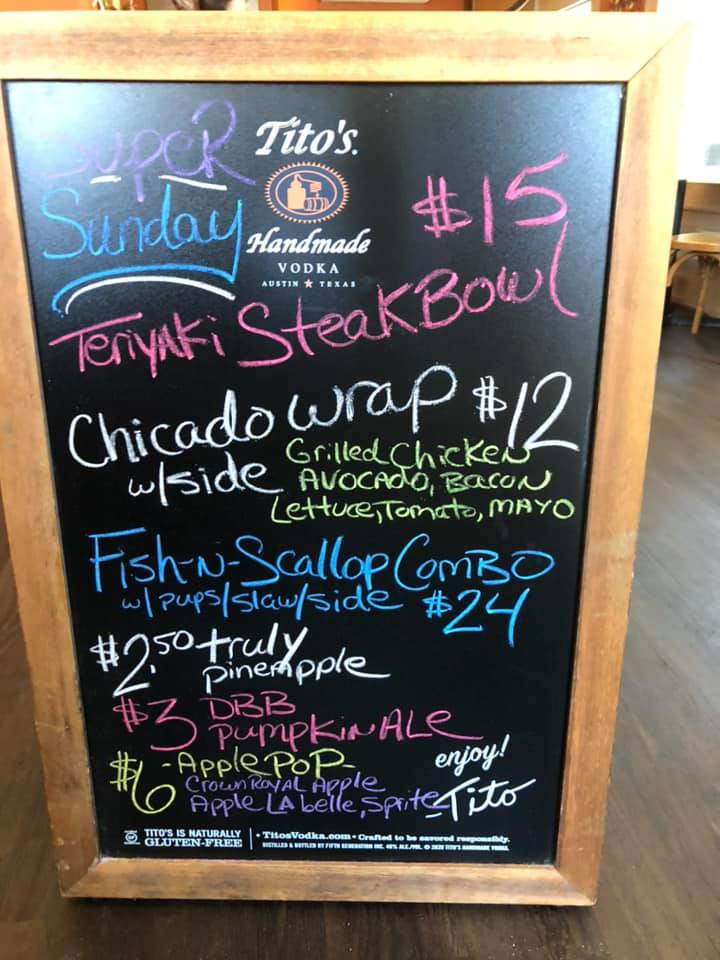 SUPER
Sunday
Tito's
Handmade
VODKA
AUSTIN ★ TEXAS
$15
Teriyaki Steak Bowl
Chicado wrap $12
w/side
Grilled Chicken
Avocado, Bacon
Lettuce, Tomato, MAYO
Fish-N-Scallop Combo
w/pups/slaw/side $24
$2.50 truly
pineapple
$3 DBB
pumpkin ALE
$6 -Apple Pop-
Crown Royal Apple
Apple LA belle, Sprite
enjoy!
Tito
TITO'S IS NATURALLY
GLUTEN-FREE
• TitosVodka.com • Crafted to be savored responsibly.
DISTILLED & BOTTLED BY FIFTH GENERATION INC. 40% ALC./VOL. © 2020 TITO'S HANDMADE VODKA.